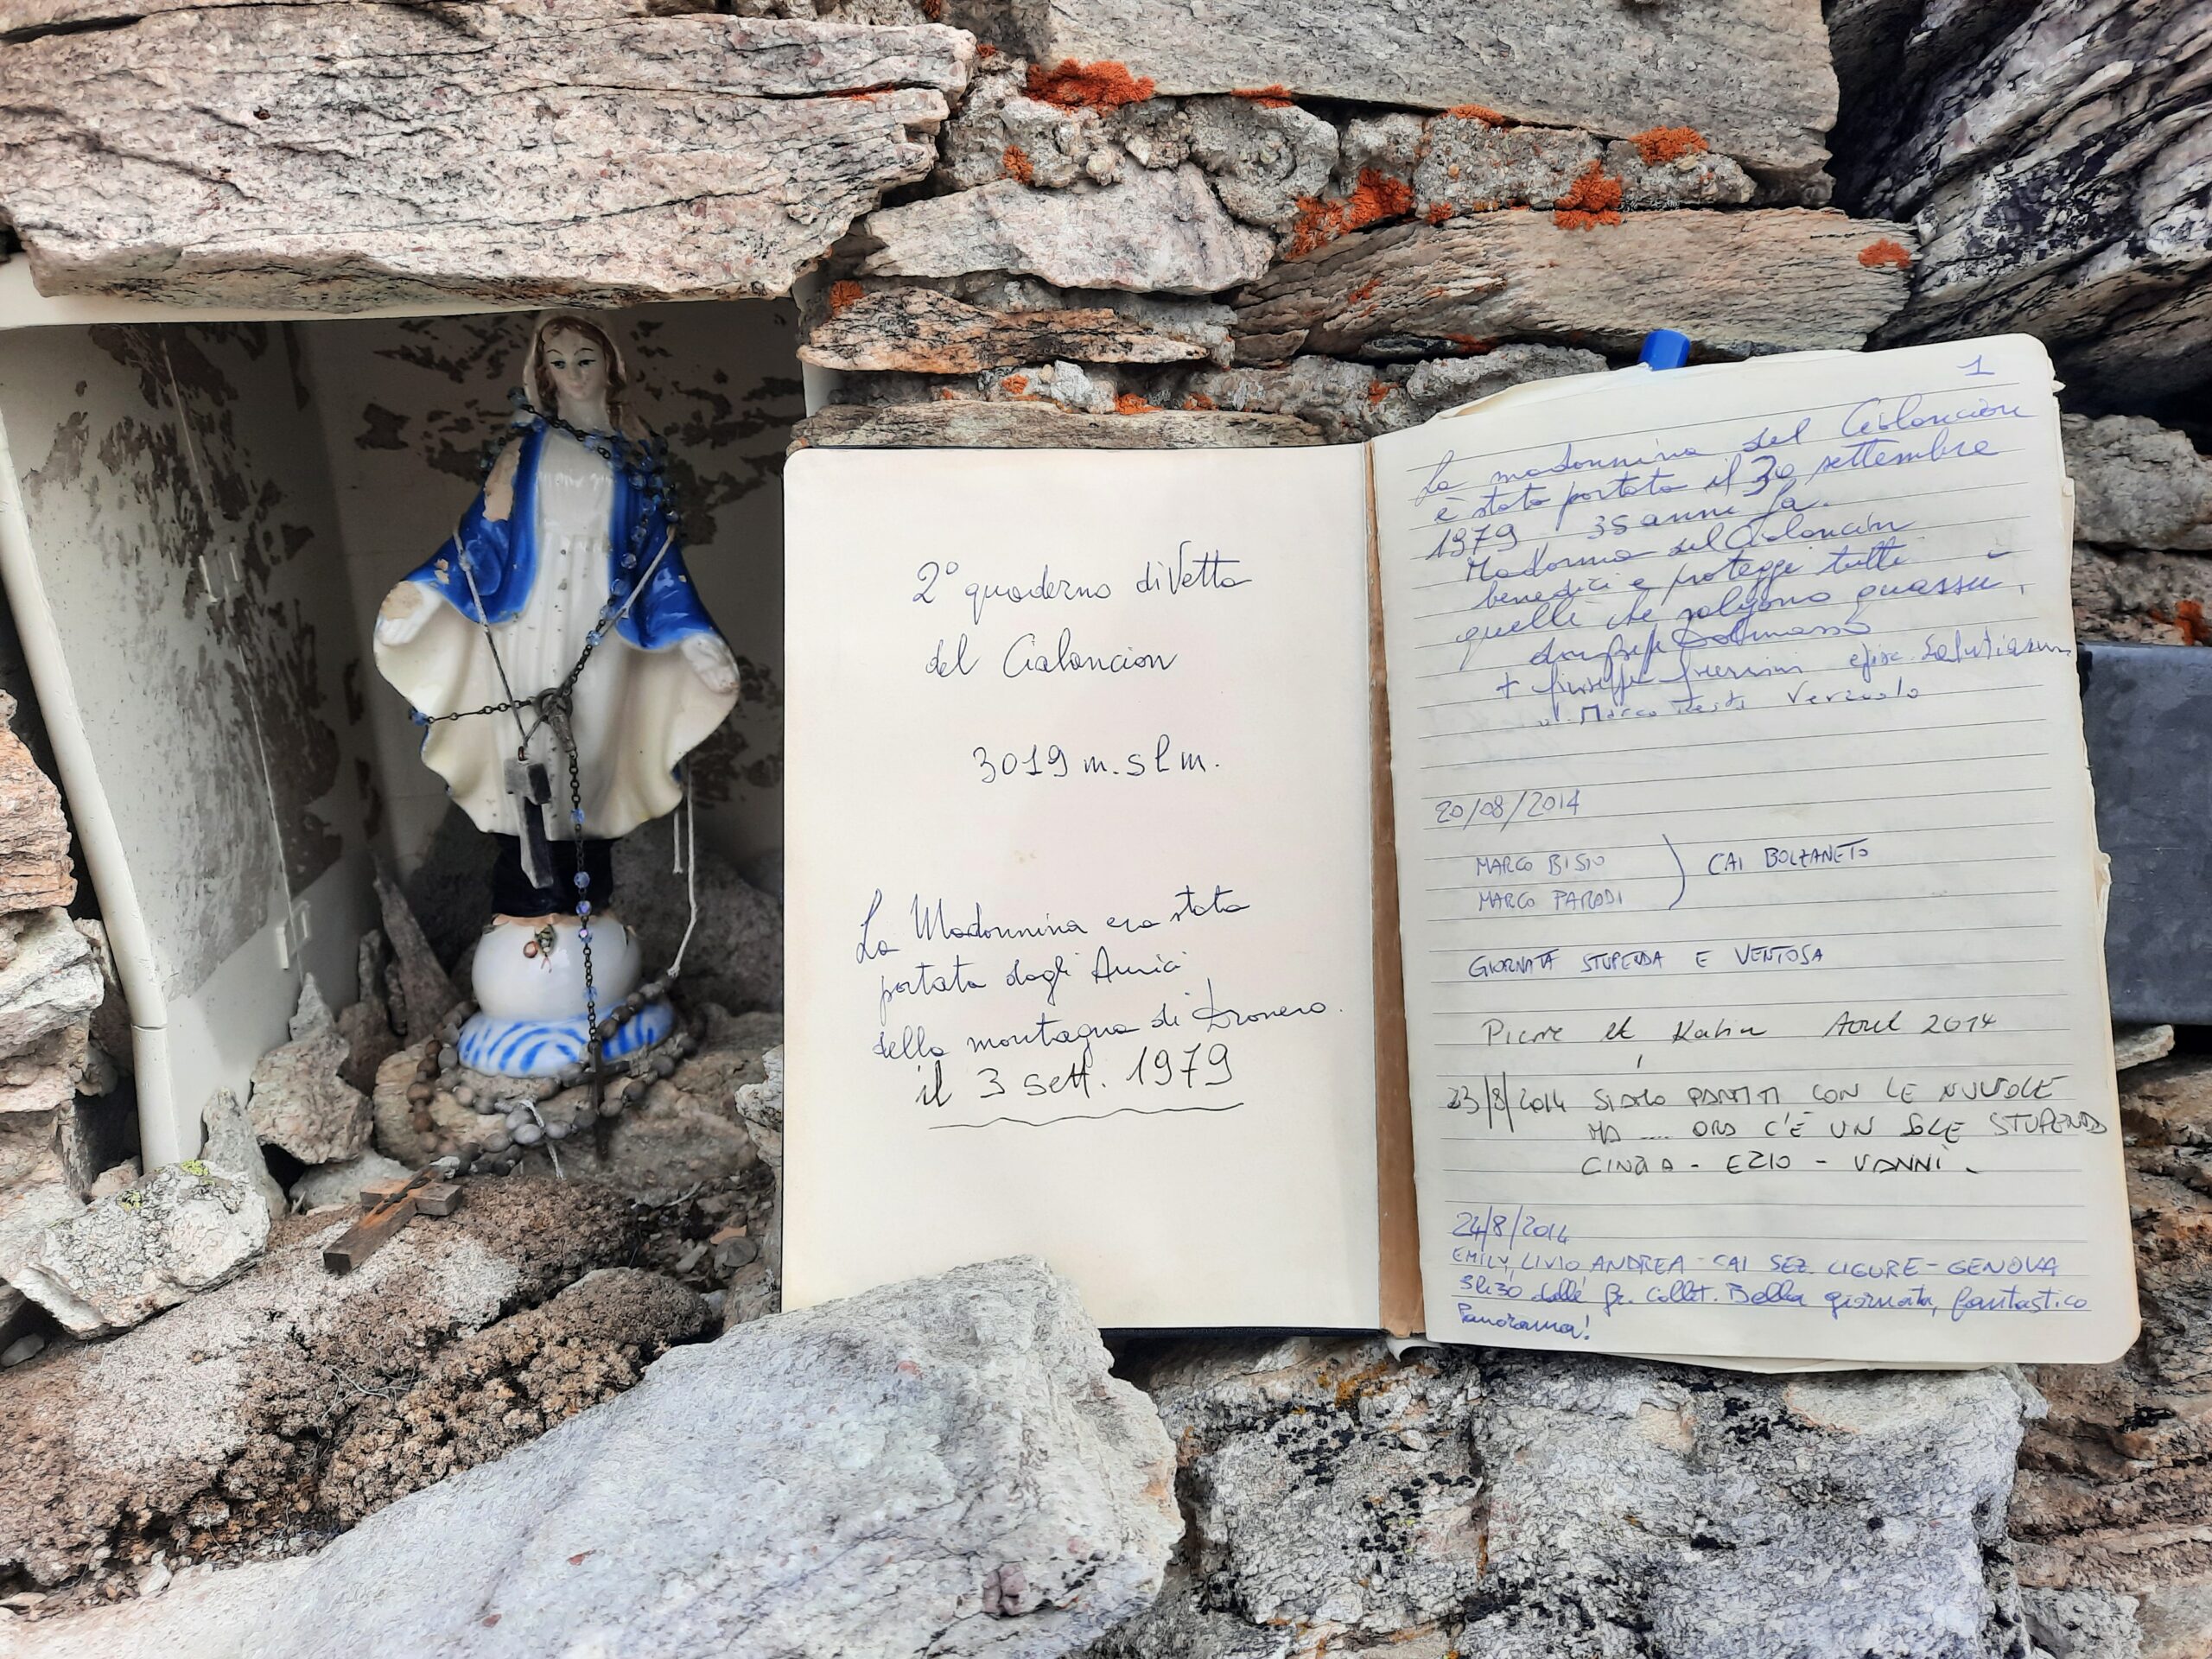 2° quaderno di Vetta
del Cialancion
3019 m. s l m.
La Madonnina era stata
portata dagli Amici
della montagna di Dronero.
il 3 sett. 1979
1
La madonnina del Cialancion
è stata portata il 30 settembre
1979 35 anni fa.
Madonna del Cialancion
benedici e proteggi tutti
quelli che salgono quassù,
don
+ Giuseppe Guerrini episc.
Marco Testa Verzuolo
20/08/2014
MARCO BISIO
MARCO PARODI
CAI BOLZANETO
GIORNATA STUPENDA E VENTOSA
Pierre et Katia Aout 2014
23/8/2014 SIAMO PARTITI CON LE NUVOLE
MA .... ORA C'È UN SOLE STUPENDO
CINZIA - EZIO - VANNI.
24/8/2014
EMILY, LIVIO ANDREA - CAI SEZ. LIGURE - GENOVA
3h30 dalle Gr. Collet. Bella giornata, fantastico
Panorama!